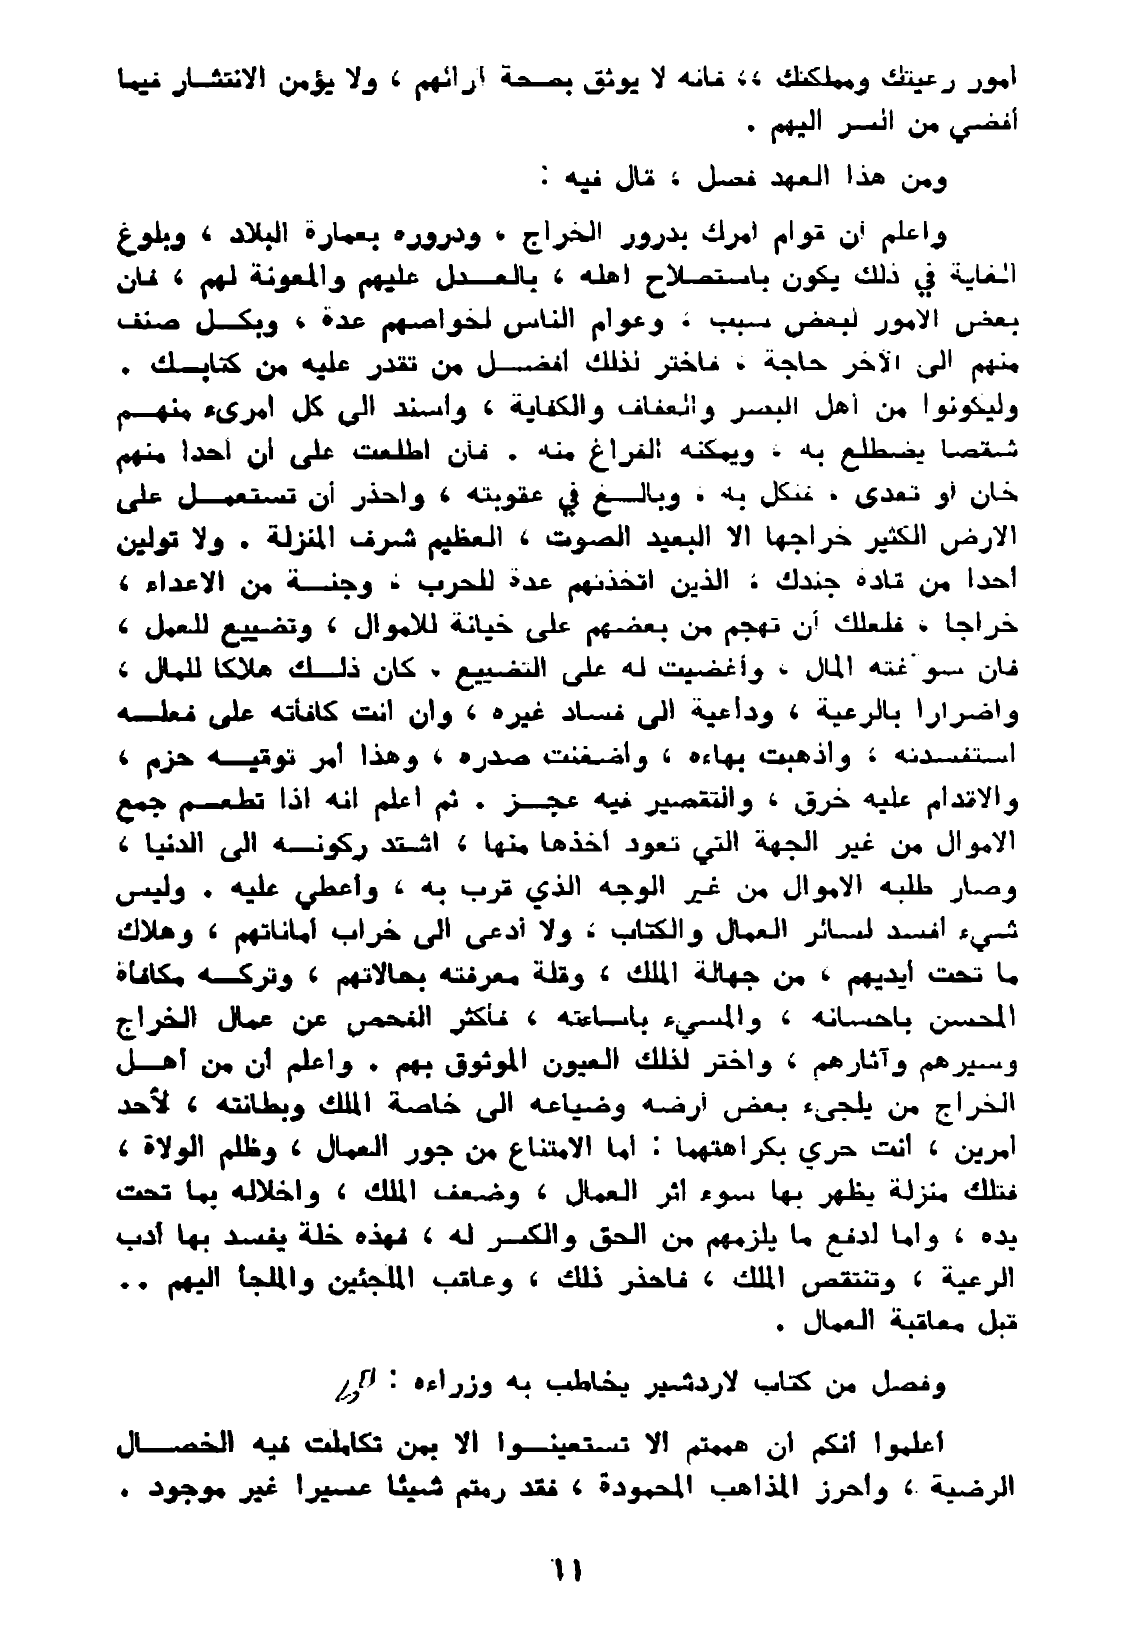 أمور رعيتك ومملكتك ،، فانه لا يوثق بصحة آرائهم ، ولا يؤمن الانتشار فيما
أفضي من السر اليهم .
ومن هذا العهد فصل ، قال فيه :
واعلم أن قوام أمرك بدرور الخراج ، ودروره بعمارة البلاد ، وبلوغ
الغاية في ذلك يكون باستصلاح أهله ، بالعدل عليهم والمعونة لهم ، فان
بعض الامور لبعض سبب ، وعوام الناس لخواصهم عدة ، وبكل صنف
منهم الى الآخر حاجة ، فاختر لذلك أفضل من تقدر عليه من كتابك .
وليكونوا من أهل البصر والعفاف والكفاية ، وأسند الى كل امرىء منهم
شقصا يضطلع به ، ويمكنه الفراغ منه . فأن اطلعت على أن أحدا منهم
خان أو تعدى ، فنكل به ، وبالغ في عقوبته ، واحذر أن تستعمل على
الارض الكثير خراجها الا البعيد الصوت ، العظيم شرف المنزلة . ولا تولين
أحدا من قادة جندك ، الذين اتخذتهم عدة للحرب ، وجنة من الاعداء ،
خراجا ، فلعلك أن تهجم من بعضهم على خيانة للاموال ، وتضييع للعمل ،
فان سوغته المال ، وأغضيت له على التضييع ، كان ذلك هلاكا للمال ،
واضرارا بالرعية ، وداعية الى فساد غيره ، وأن أنت كافأته على فعله
استفسدته ، وأذهبت بهاءه ، وأضغنت صدره ، وهذا أمر توقيه حزم ،
والاقدام عليه خرق ، والتقصير فيه عجز . ثم أعلم انه اذا تطعم جمع
الاموال من غير الجهة التي تعود أخذها منها ، اشتد ركونه الى الدنيا ،
وصار طلبه الاموال من غير الوجه الذي قرب به ، وأعطي عليه . وليس
شيء أفسد لسائر العمال والكتاب ، ولا أدعى الى خراب أماناتهم ، وهلاك
ما تحت أيديهم ، من جهالة الملك ، وقلة معرفته بحالاتهم ، وتركه مكافأة
المحسن باحسانه ، والمسيء باساءته ، فأكثر الفحص عن عمال الخراج
وسيرهم وآثارهم ، واختر لذلك العيون الموثوق بهم . واعلم أن من أهل
الخراج من يلجىء بعض أرضه وضياعه الى خاصة الملك وبطانته ، لأحد
أمرين ، أنت حري بكراهتهما : أما الامتناع من جور العمال ، وظلم الولاة ،
فتلك منزلة يظهر بها سوء اثر العمال ، وضعف الملك ، واخلاله بما تحت
يده ، واما لدفع ما يلزمهم من الحق والكسر له ، فهذه خلة يفسد بها أدب
الرعية ، وتنتقص الملك ، فاحذر ذلك ، وعاقب الملجئين والملجأ اليهم ..
قبل معاقبة العمال .
وفصل من كتاب لاردشير يخاطب به وزراءه :
أعلموا أنكم أن هممتم ألا تستعينوا الا بمن تكاملت فيه الخصال
الرضية ، وأحرز المذاهب المحمودة ، فقد رمتم شيئا عسيرا غير موجود .
٦١